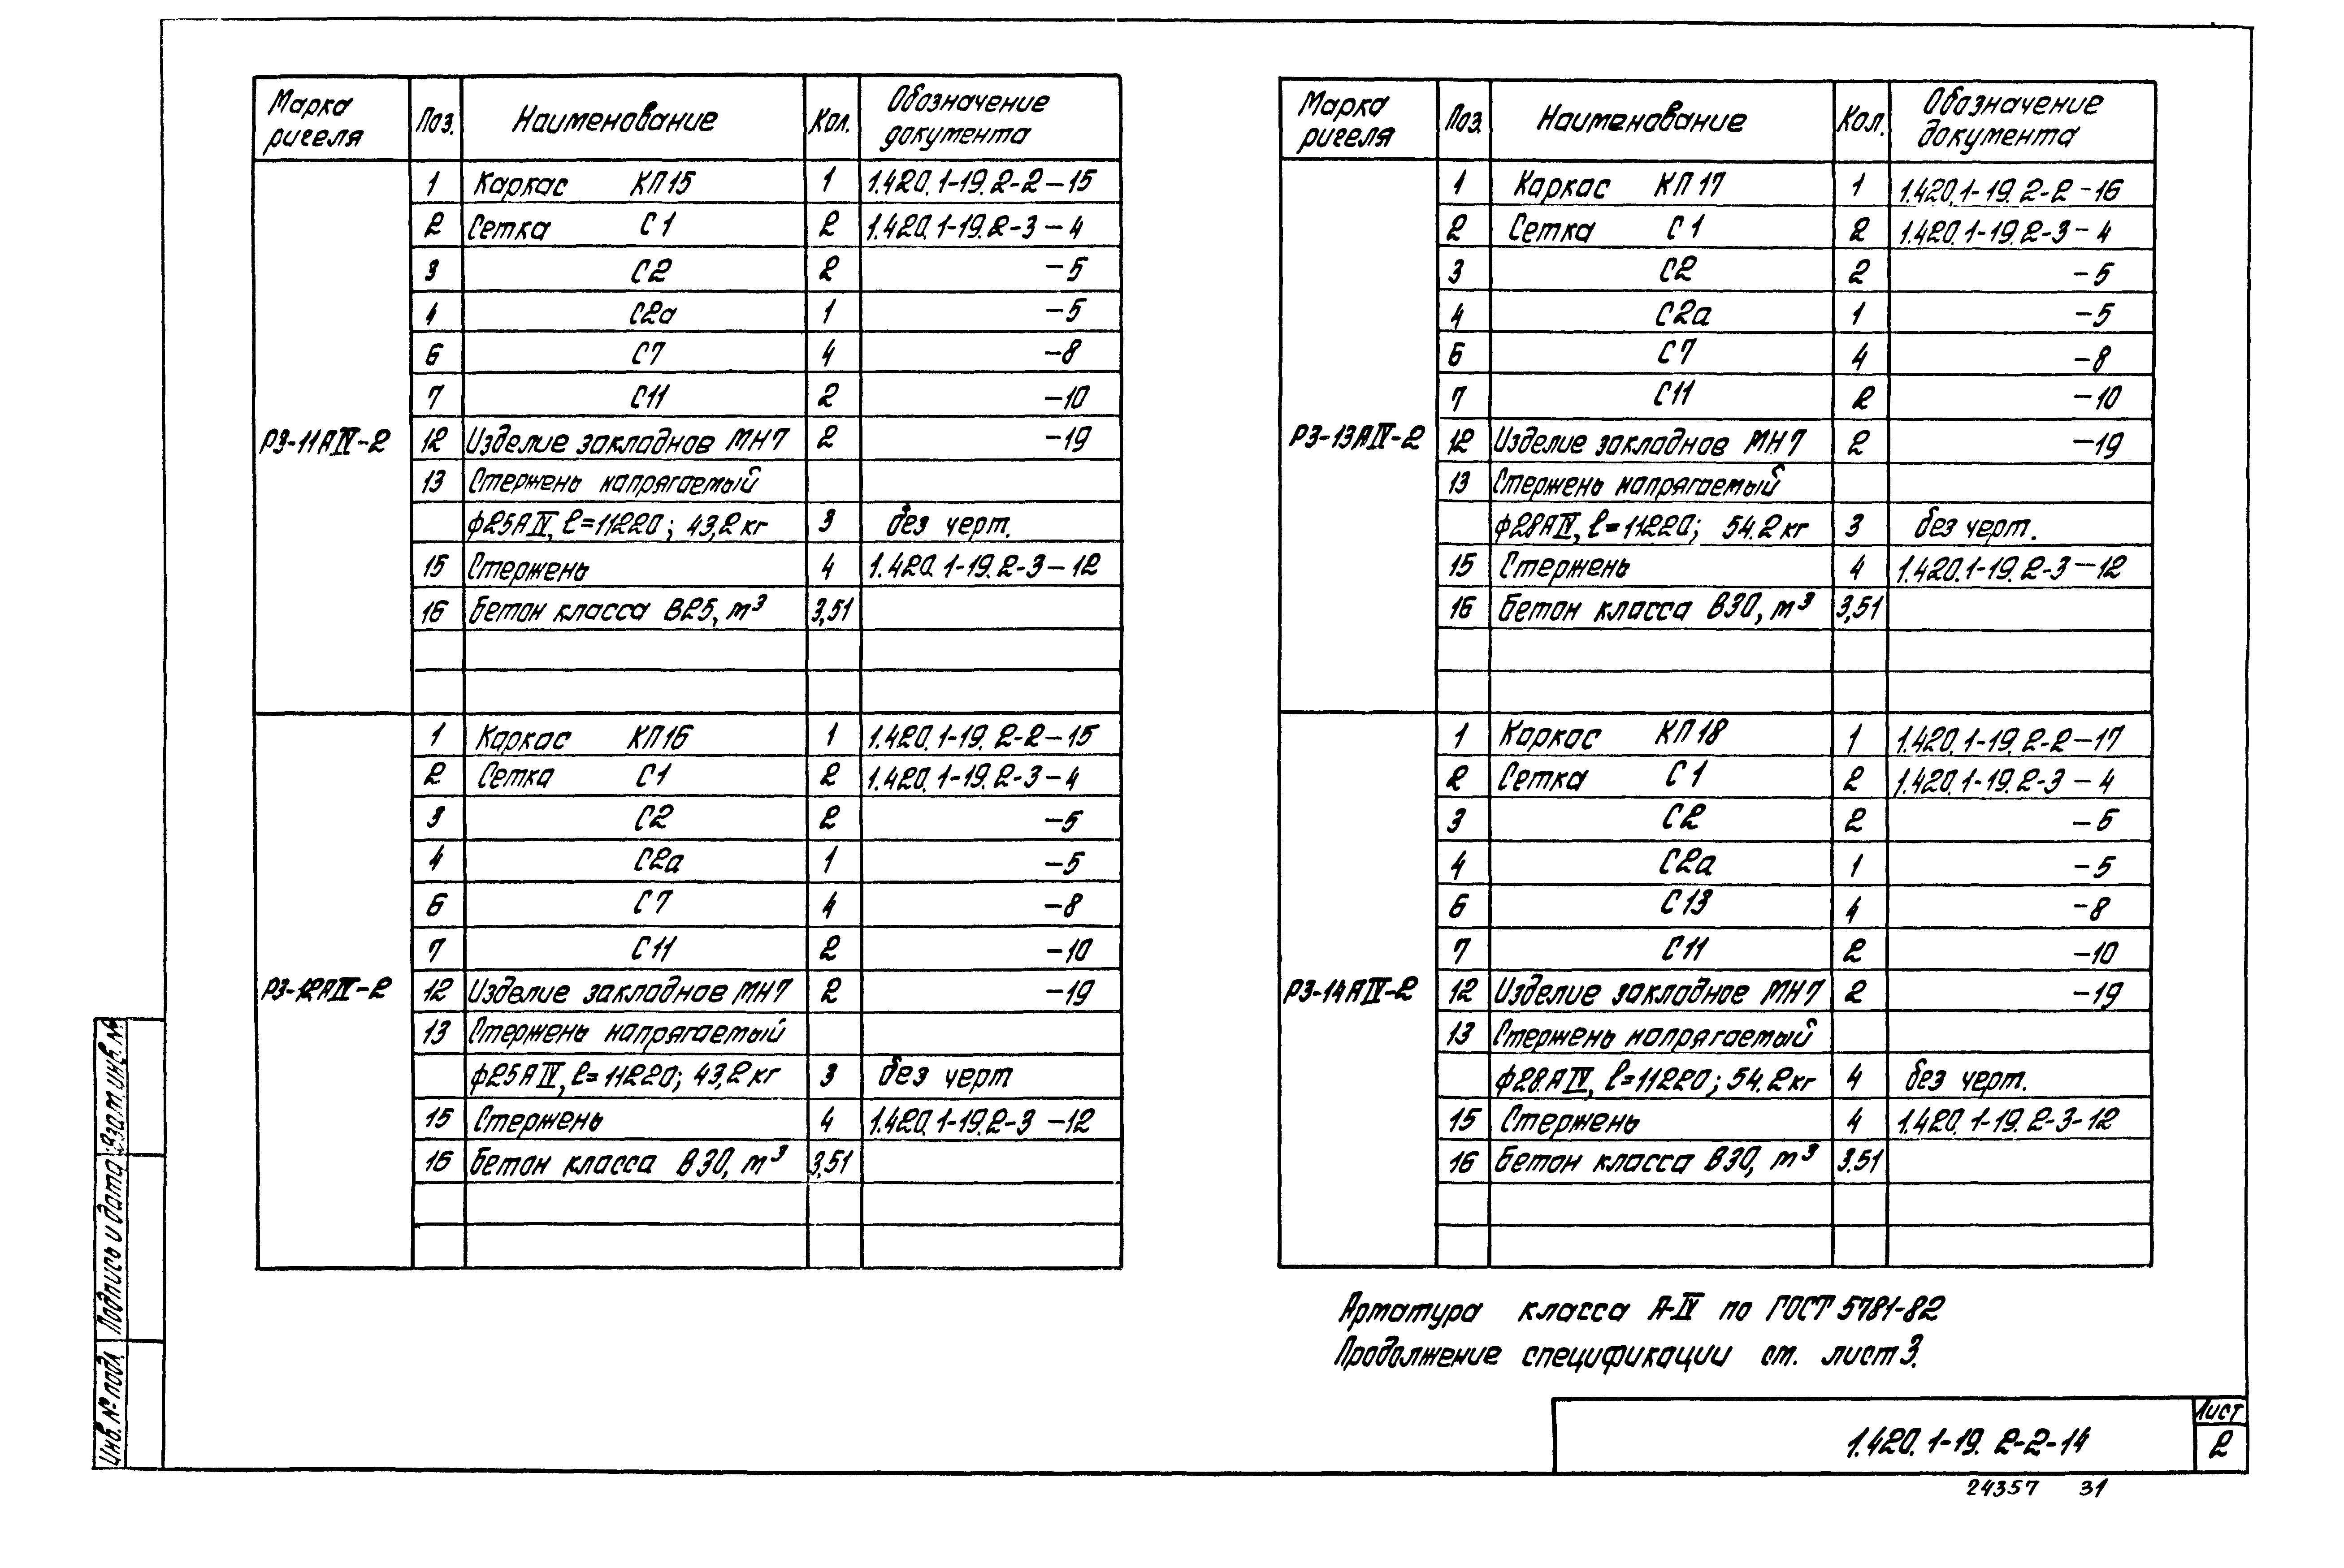 Марка ригеля Поз. Наименование Кол. Обозначение документа
РЗ-11АIV-2
1 Каркас КП15 1 1.420.1-19.2-2-15
2 Сетка С1 2 1.420.1-19.2-3-4
3 С2 2 -5
4 С2а 1 -5
6 С7 4 -8
7 С11 2 -10
12 Изделие закладное МН7 2 -19
13 Стержень напрягаемый
ф25АIV, ℓ=11220; 43,2кг 3 без черт.
15 Стержень 4 1.420.1-19.2-3-12
16 Бетон класса В25, м³ 3,51
РЗ-12АIV-2
1 Каркас КП16 1 1.420.1-19.2-2-15
2 Сетка С1 2 1.420.1-19.2-3-4
3 С2 2 -5
4 С2а 1 -5
6 С7 4 -8
7 С11 2 -10
12 Изделие закладное МН7 2 -19
13 Стержень напрягаемый
ф25АIV, ℓ=11220; 43,2кг 3 без черт
15 Стержень 4 1.420.1-19.2-3-12
16 Бетон класса В30, м³ 3,51
Марка ригеля Поз. Наименование Кол. Обозначение документа
РЗ-13АIV-2
1 Каркас КП17 1 1.420.1-19.2-2-16
2 Сетка С1 2 1.420.1-19.2-3-4
3 С2 2 -5
4 С2а 1 -5
6 С7 4 -8
7 С11 2 -10
12 Изделие закладное МН7 2 -19
13 Стержень напрягаемый
ф28АIV, ℓ=11220; 54.2кг 3 без черт.
15 Стержень 4 1.420.1-19.2-3-12
16 Бетон класса В30, м³ 3,51
РЗ-14АIV-2
1 Каркас КП18 1 1.420.1-19.2-2-17
2 Сетка С1 2 1.420.1-19.2-3-4
3 С2 2 -5
4 С2а 1 -5
6 С13 4 -8
7 С11 2 -10
12 Изделие закладное МН7 2 -19
13 Стержень напрягаемый
ф28АIV, ℓ=11220; 54.2кг 4 без черт.
15 Стержень 4 1.420.1-19.2-3-12
16 Бетон класса В30, м³ 3.51
Арматура класса А-IV по ГОСТ 5781-82
Продолжение спецификации см. лист 3.
1.420.1-19.2-2-14
Лист
2
24357 31
Инв. № подл. Подпись и дата Взам. инв. №